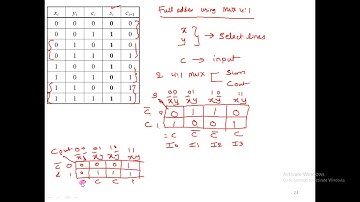 Full adder using Mux 4:1
x
y
→ select lines
C → input
2 4:1 mux
Sum
Cout
xi yi ci si ci+1
0 0 0 0 0
0 0 1 1 0
0 1 0 1 0
0 1 1 0 1
1 0 0 1 0
1 0 1 0 1
1 1 0 0 1
1 1 1 1 1
S 00 01 10 11
x̄ȳ x̄y xȳ xy
C̄ 0 0 1 1 0
C 1 1 0 0 1
=C C̄ C̄ C
I0 I1 I2 I3
Cout 00 01 10 11
x̄ȳ x̄y xȳ xy
C̄ 0 0 0 0 1
C 1 0 1 1 1
0 C C 1
Activate Windows
24